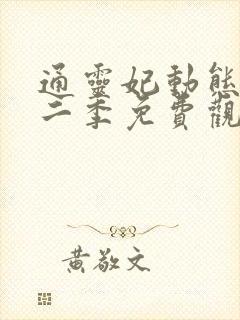 通靈妃動態
二季免費觀
黃敬文